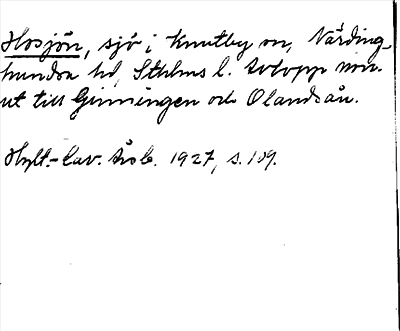 Hosjön, sjö i Knutby sn, Närding-
hundra hd, Sthlms l. Avlopp norr-
ut till Gimmingen och Olandsån.
Hylt.-Cav. Årsb. 1927, s. 109.